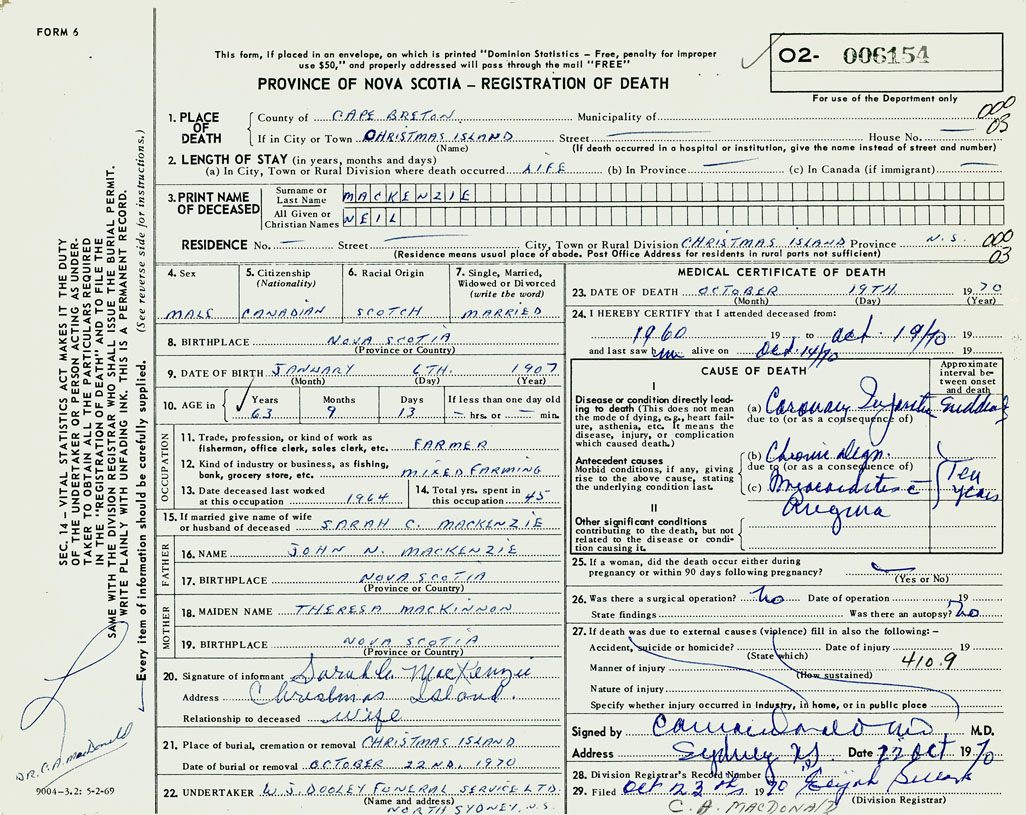 FORM 6
This form, if placed in an envelope, on which is printed "Dominion Statistics – Free, penalty for improper
use $50," and properly addressed will pass through the mail "FREE"
PROVINCE OF NOVA SCOTIA – REGISTRATION OF DEATH
02- 006154
For use of the Department only
SEC. 14 – VITAL STATISTICS ACT MAKES IT THE DUTY
OF THE UNDERTAKER OR PERSON ACTING AS UNDER-
TAKER TO OBTAIN ALL THE PARTICULARS REQUIRED
IN THE "REGISTRATION OF DEATH" AND TO FILE THE
SAME WITH THE DIVISION REGISTRAR WHO SHALL ISSUE THE BURIAL PERMIT.
WRITE PLAINLY WITH UNFADING INK. THIS IS A PERMANENT RECORD.
Every item of information should be carefully supplied. (See reverse side for instructions.)
1. PLACE OF DEATH
County of CAPE BRETON Municipality of 000
If in City or Town CHRISTMAS ISLAND Street House No. 03
(Name) (If death occurred in a hospital or institution, give the name instead of street and number)
2. LENGTH OF STAY (in years, months and days)
(a) In City, Town or Rural Division where death occurred LIFE (b) In Province (c) In Canada (if immigrant)
3. PRINT NAME OF DECEASED
Surname or Last Name MACKENZIE
All Given or Christian Names NEIL
RESIDENCE No. Street City, Town or Rural Division CHRISTMAS ISLAND Province N.S. 000
(Residence means usual place of abode. Post Office Address for residents in rural parts not sufficient) 03
4. Sex
MALE
5. Citizenship (Nationality)
CANADIAN
6. Racial Origin
SCOTCH
7. Single, Married, Widowed or Divorced (write the word)
MARRIED
8. BIRTHPLACE NOVA SCOTIA
(Province or Country)
9. DATE OF BIRTH JANUARY 6TH. 1907
(Month) (Day) (Year)
10. AGE in Years Months Days If less than one day old
63 9 13 hrs. or min.
OCCUPATION
11. Trade, profession, or kind of work as
fisherman, office clerk, sales clerk, etc. FARMER
12. Kind of industry or business, as fishing,
bank, grocery store, etc. MIXED FARMING
13. Date deceased last worked
at this occupation 1964
14. Total yrs. spent in
this occupation 45
15. If married give name of wife
or husband of deceased SARAH C. MACKENZIE
FATHER
16. NAME JOHN N. MACKENZIE
17. BIRTHPLACE NOVA SCOTIA
(Province or Country)
MOTHER
18. MAIDEN NAME THERESA MACKINNON
19. BIRTHPLACE NOVA SCOTIA
(Province or Country)
20. Signature of informant Sarah C. MacKenzie
Address Christmas Island.
Relationship to deceased wife
21. Place of burial, cremation or removal CHRISTMAS ISLAND
Date of burial or removal OCTOBER 22ND. 1970
22. UNDERTAKER W.J. DOOLEY FUNERAL SERVICE LTD.
(Name and address) NORTH SYDNEY, N.S.
MEDICAL CERTIFICATE OF DEATH
23. DATE OF DEATH OCTOBER 19TH. 1970
(Month) (Day) (Year)
24. I HEREBY CERTIFY that I attended deceased from:
1960 19 to Oct 19/70 19
and last saw him alive on Oct. 14/70 19
CAUSE OF DEATH
Approximate interval between onset and death
I
Disease or condition directly lead-
ing to death (This does not mean
the mode of dying, e.g., heart fail-
ure, asthenia, etc. It means the
disease, injury, or complication
which caused death.)
(a) Coronary
due to (or as a consequence of)
Antecedent causes
Morbid conditions, if any, giving
rise to the above cause, stating
the underlying condition last.
(b) Chronic Degn.
due to (or as a consequence of)
(c) Myocarditis c̄
Angina
Ten years
II
Other significant conditions
contributing to the death, but not
related to the disease or condi-
tion causing it.
25. If a woman, did the death occur either during
pregnancy or within 90 days following pregnancy?
(Yes or No)
26. Was there a surgical operation? No Date of operation 19
State findings Was there an autopsy? No
27. If death was due to external causes (violence) fill in also the following:–
Accident, suicide or homicide? Date of injury 19
(State which) 410.9
Manner of injury
(How sustained)
Nature of injury
Specify whether injury occurred in Industry, in home, or in public place
Signed by CAMacDonald MD M.D.
Address Sydney NS Date 22 Oct 1970
28. Division Registrar's Record Number
29. Filed Oct 23rd, 1970
(Division Registrar)
C. A. MACDONALD
DR. C.A. MacDonald
9004-3.2: 5-2-69